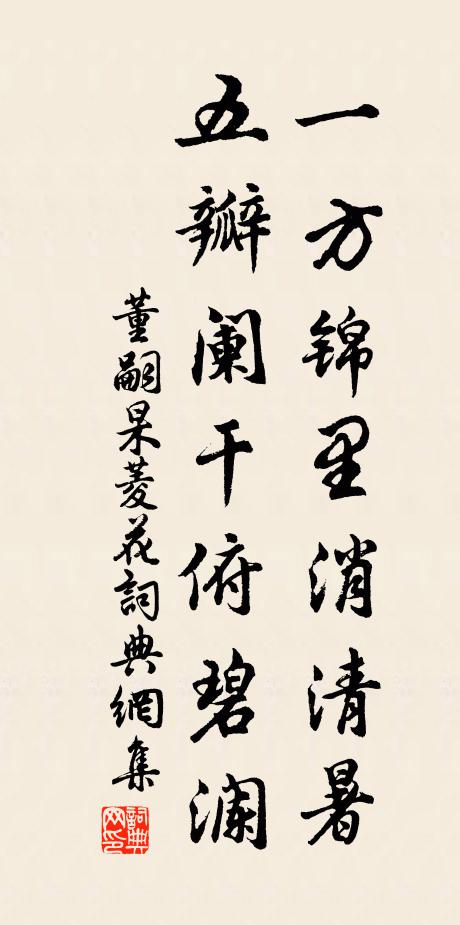 一方锦里消清暑
五瓣阑干俯碧澜
董嗣杲菱花詞典網集
詞典网印